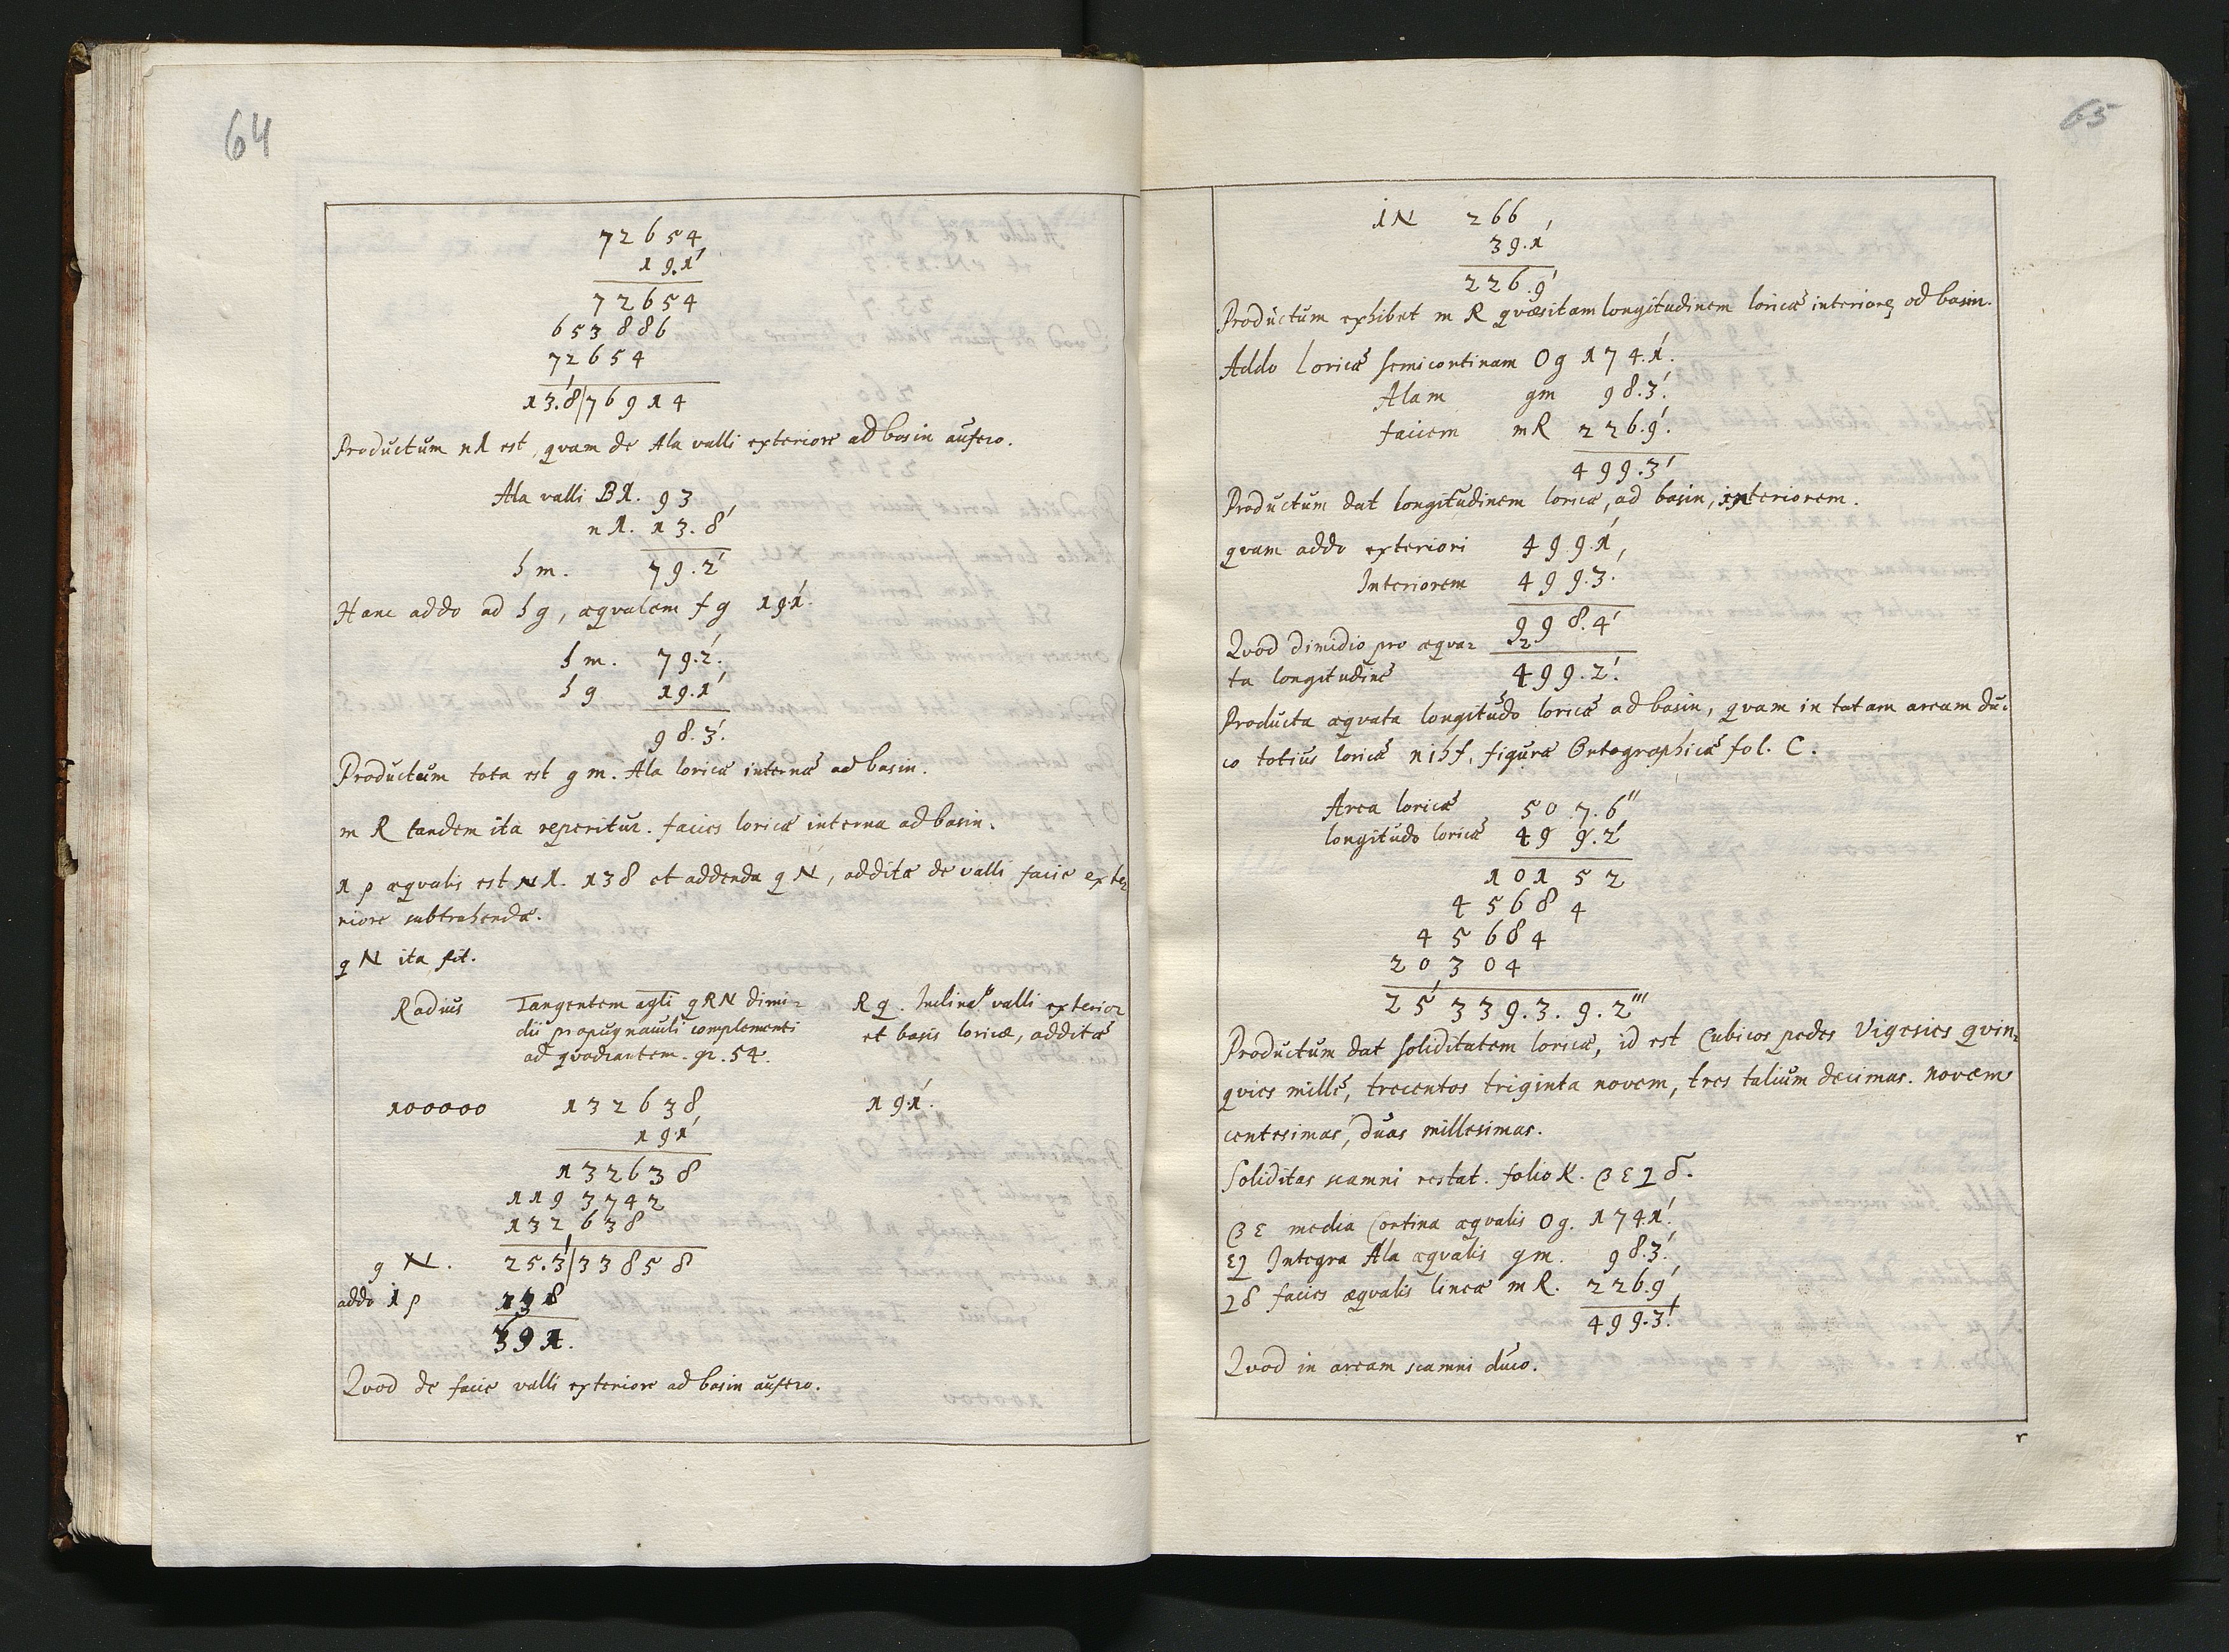 64
72654
19.1'
72654
653886
72654
13.8'|76914
Productum n1 est, qvam de Ala valli exteriore ad basin aufero.
Ala valli B1. 93
n1. 13.8'
h m. 79.2'
Hanc addo ad h g, æqvalem f g 19.1'.
h m. 79.2'.
h g 19.1'
98.3'.
Productum tota est g m. Ala loricæ internæ ad basin.
m R tandem ita reperitur. facies loricæ interna ad basin.
1 p æqvalis est N1. 138 et addenda q N, additæ de valli facie exte-
riore subtrahendæ.
q N ita fit.
Radius Tangentem agli qRN dimi- R q. Inclinao valli exterior
dii propugnaculi complementi et basis loricæ, additæ
ad qvadrantem. gr. 54.
100000 132638 19.1'.
19.1'
132638
1193742
132638
q N. 25.3'|33858
addo 1 p 138
391.
Qvod de facie valli exteriore ad basin aufero.
65
1N 266
39.1'
226.9'
Productum exhibet m R qvæsitam longitudinem loricæ interiorem ad basin.
Addo Loricæ semicortinam Og 174.1'.
Alam gm 98.3'.
faciem mR 226.9'.
499.3'
Productum dat longitudinem loricæ, ad basin, interiorem.
qvam addo exteriori 499.1',
Interiorem 499.3'.
998.4'
Qvod dimidio pro æqva- 2
ta longitudine 499.2'.
Producta æqvata longitudo loricæ ad basin, qvam in totam aream du-
co totius loricæ nihf, figuræ Ortographicæ fol. C.
Area loricæ 50.7.6''
longitudo loricæ 499.2'
10152
45684
45684
20304
25'339.3.9.2'''
Productum dat soliditatem loricæ, id est Cubicos pedes Vigesies qvin-
qvies mille, trecentos triginta novem, tres talium decimas. novem
centesimas, duas millesimas.
Soliditas scamni restat. folio K. β ε ʅ δ.
β ε media Cortina æqvalis Og. 174.1'.
εʅ Integra Ala æqvalis gm. 98.3'.
ʅδ facies æqvalis lineæ mR. 226.9'
499.3'.
Qvod in aream scamni duco.
r